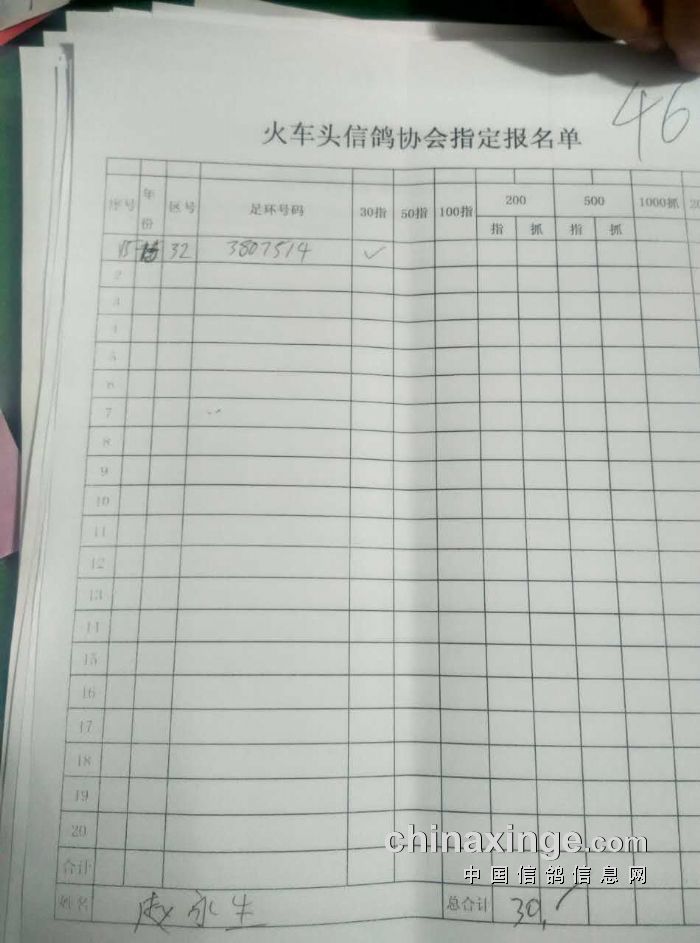 46
火车头信鸽协会指定报名单
序号 年份 区号 足环号码 30指 50指 100指 200 500 1000抓 20
指 抓 指 抓
15 32 3807514 ✓
2
3
4
5
6
7
8
9
10
11
12
13
14
15
16
17
18
19
20
合计
姓名 赵永生 总合计 30
chinaxinge.com
中国信鸽信息网